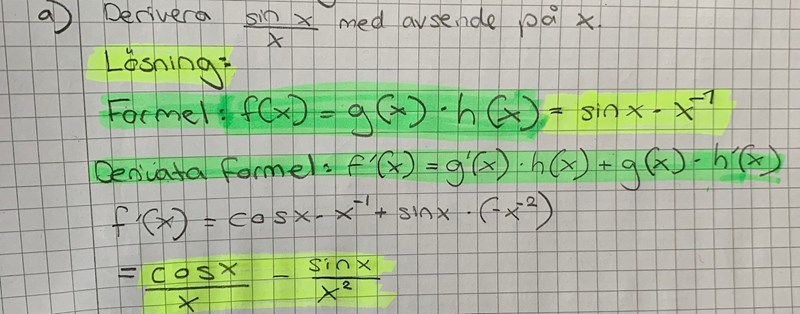 a) Derivera sin x / x med avsende på x.
Lösning:
Formel: f(x) = g(x) · h(x) = sin x · x⁻¹
Derivata formel: f'(x) = g'(x) · h(x) + g(x) · h'(x)
f'(x) = cos x · x⁻¹ + sin x · (-x⁻²)
= cos x / x - sin x / x²